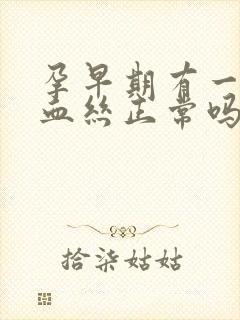 孕早期有一
血丝正常吗
拾柒姑姑